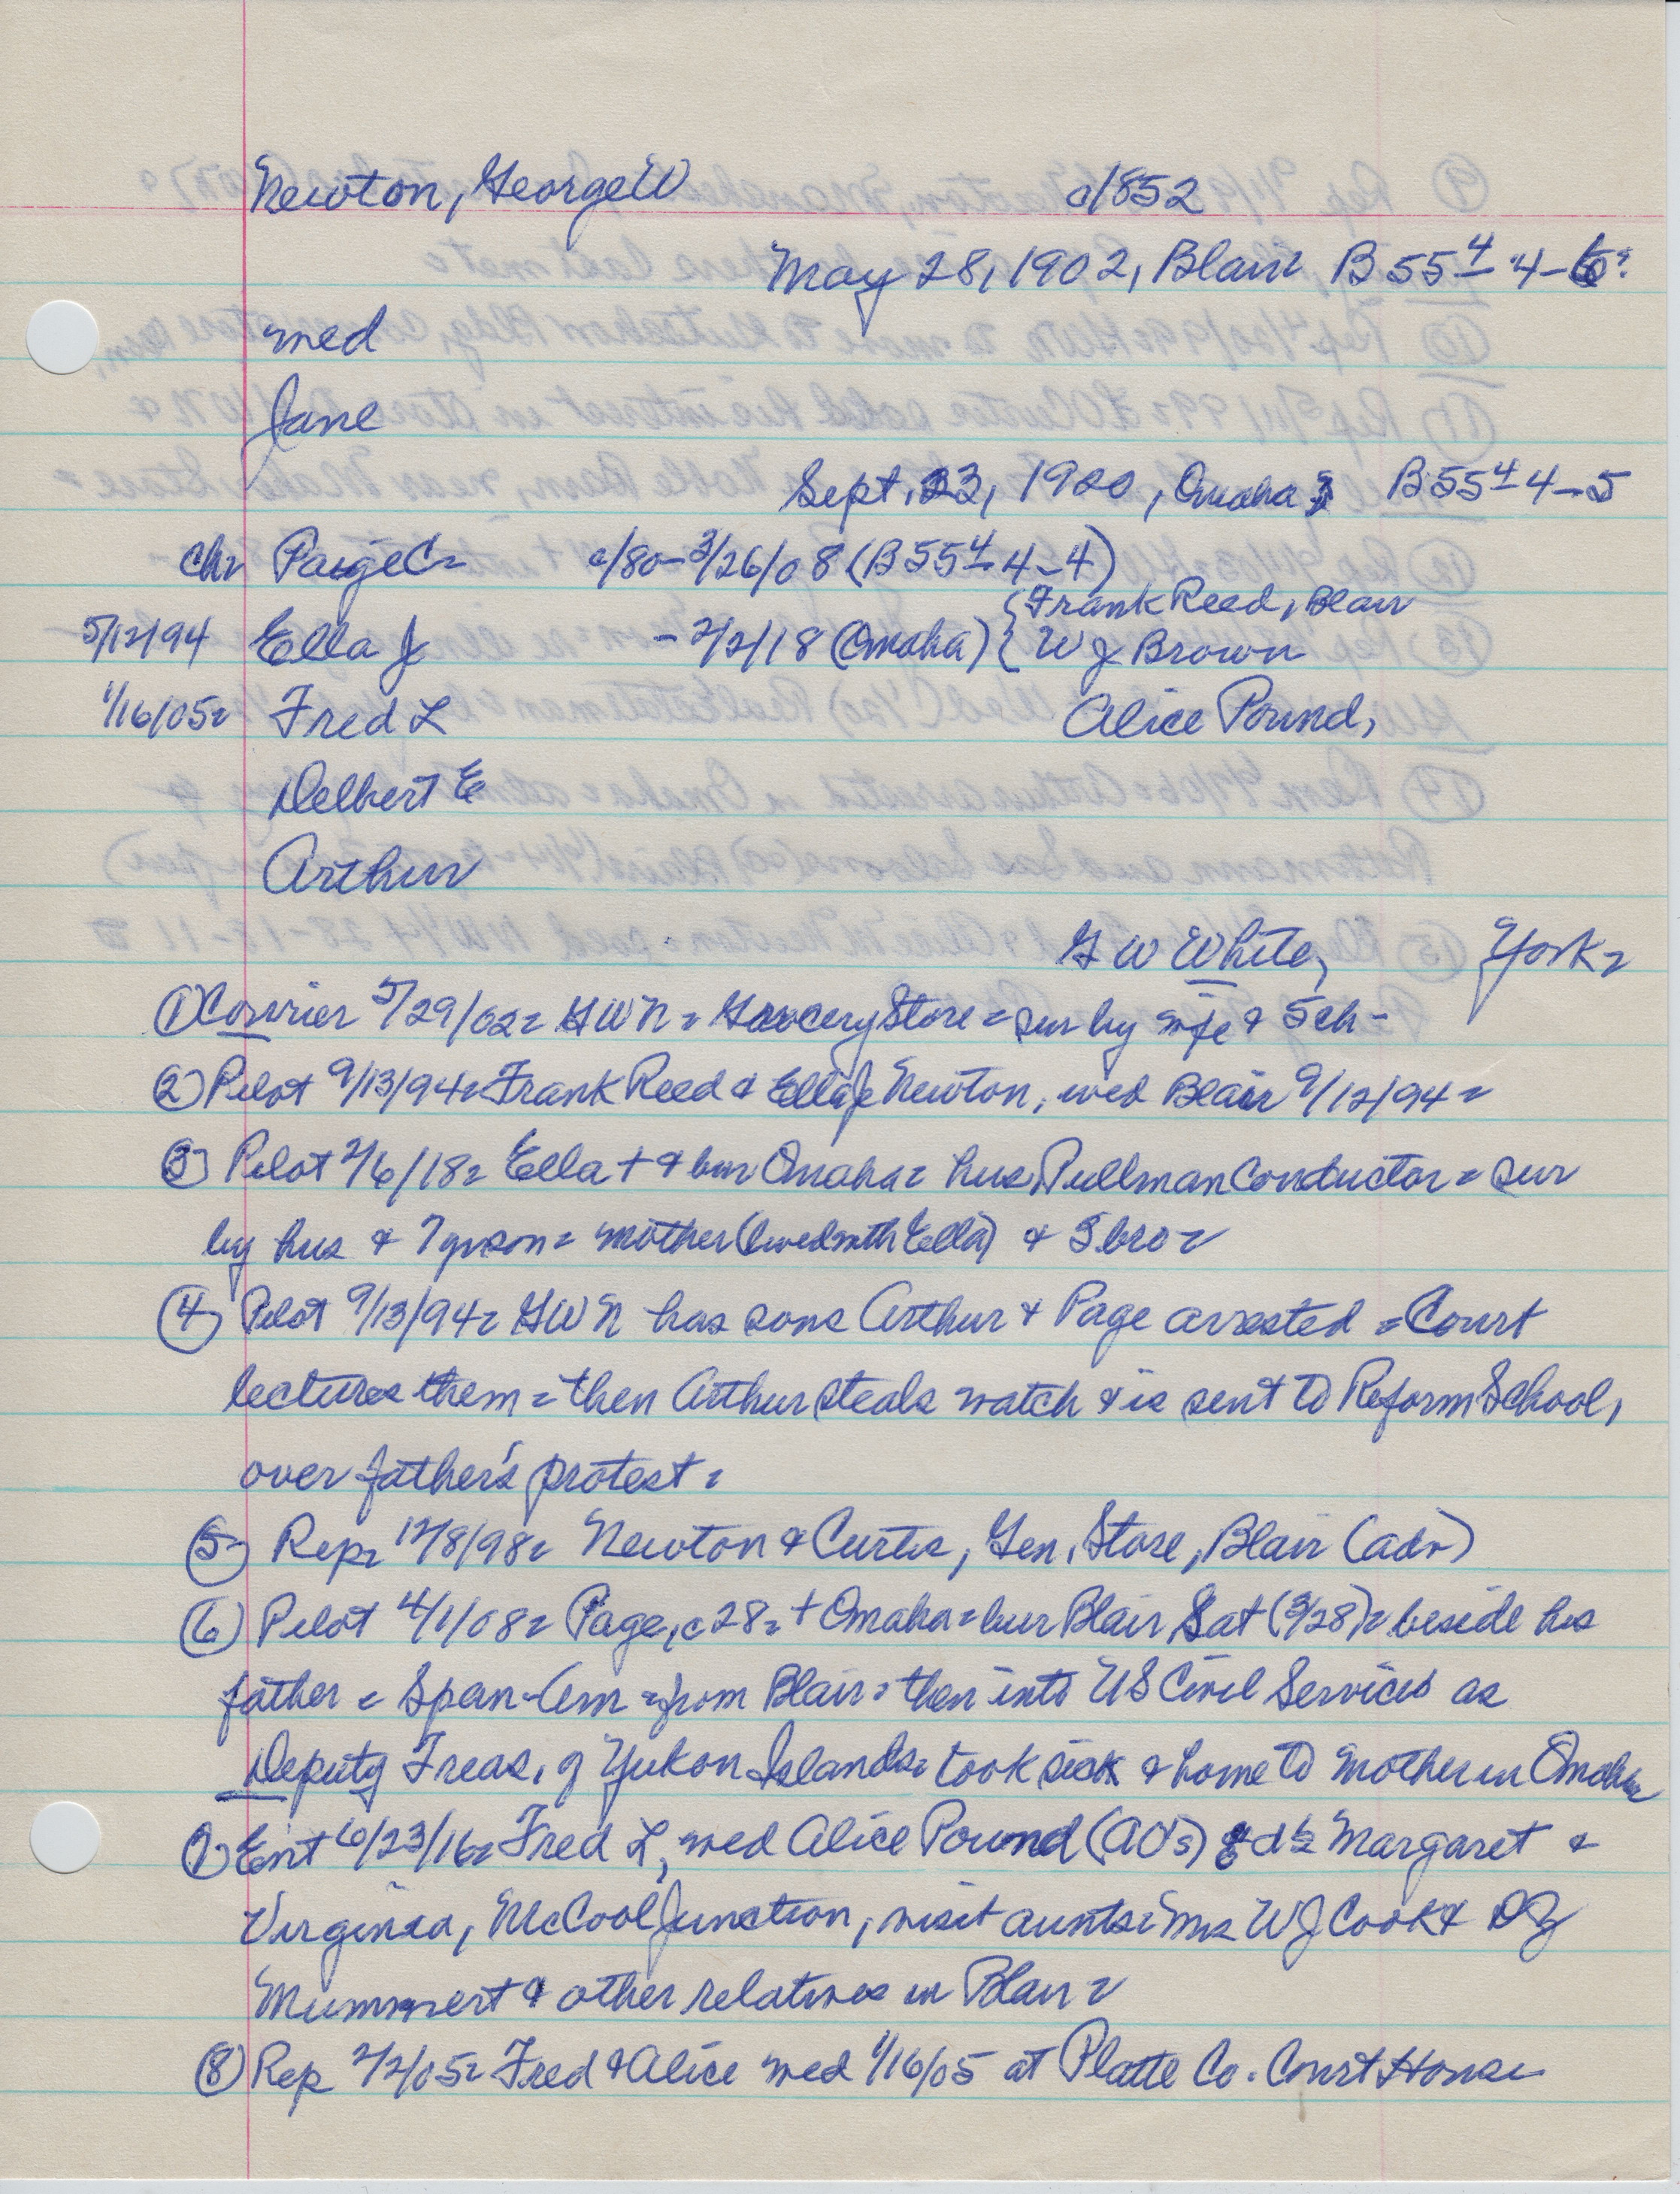 Newton, George W c/852
May 28, 1902, Blair B 55 4 4-6
med
Jane
Sept. 23, 1920, Omaha B 55 4 4-5
Ch= Paige C= c/80-3/26/08 (B 55 4 4-4)
{Frank Reed, Blair
5/12/94 Ella J -2/2/18 (Omaha) { W J Brown
1/16/05= Fred L Alice Pound,
Delbert E
Arthur
G W White, York=
① Courier 5/29/02= GWN= Grocery Store= sur by wife & 5 ch-
② Pilot 9/13/94= Frank Reed & Ella J Newton, wed Blair 9/12/94=
③ Pilot 2/6/18= Ella + & bur Omaha= hus, Pullman Conductor= sur
by hus & 7 yr son= mother (lived with Ella) & 3 bro=
④ Pilot 9/13/94= GWN has sons Arthur & Page arrested = Court
lectures them = then Arthur steals watch & is sent to Reform School,
over father's protest=
⑤ Rep= 12/8/98= Newton & Curtis, Gen. Store, Blair (adv)
⑥ Pilot 4/1/08= Page, c 28= + Omaha= bur Blair Sat (3/28)= beside his
father = Span-Am = from Blair= then into US Civil Services as
Deputy Treas. of Yukon Islands= took sick & home to mother in Omaha
⑦ Ent 6/23/16= Fred L, med Alice Pound (AO's) & ds Margaret &
Virginia, McCool Junction, visit aunts= Mrs W J Cook & D Z
Mummert & other relatives in Blair=
⑧ Rep 2/2/05= Fred & Alice med 1/16/05 at Platte Co. Court House